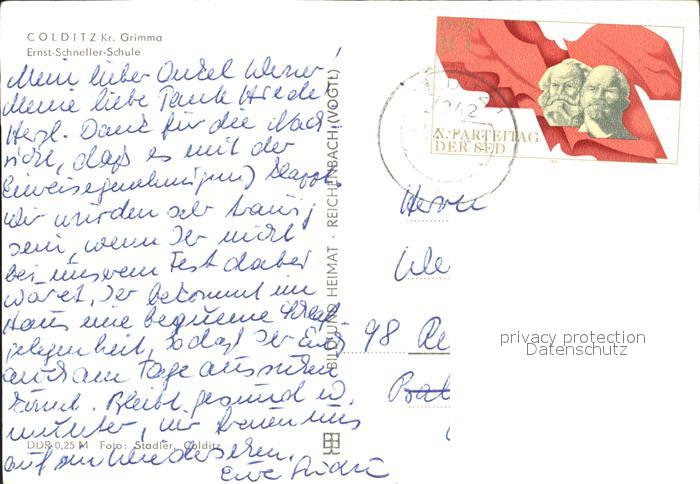 COLDITZ Kr. Grimma
Ernst-Schneller-Schule
Mein lieber Onkel Werner!
Meine liebe Tante Friedel!
Herzl. Dank für die Nach-
richt, daß es mit der
Einreisegenehmigung klappt.
Wir würden sehr traurig
sein, wenn Ihr nicht
bei unserem Fest dabei
wäret. Ihr bekommt im
Haus eine bequeme Schlaf-
gelegenheit, so daß Ihr Euch
auch am Tage ausruhen
könnt. Bleibt gesund u.
munter, wir freuen uns
auf ein Wiedersehen.
Eure
DDR 0,25 M Foto: Stadler, Colditz
BILD UND HEIMAT · REICHENBACH (VOGTL)
DDR
10
X. PARTEITAG
DER SED
Herrn
We
98 Re
Bah
privacy protection
Datenschutz